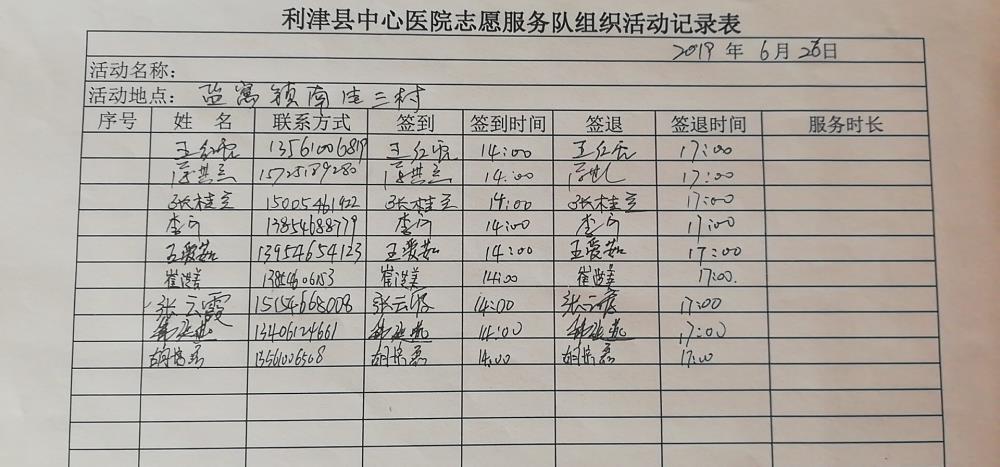 利津县中心医院志愿服务队组织活动记录表
2019 年 6 月 26 日
活动名称：
活动地点： 盐窝镇南洼三村
序号 姓 名 联系方式 签到 签到时间 签退 签退时间 服务时长
王红霞 13561006819 王红霞 14:00 王红霞 17:00
15725189280 14:00 17:00
张桂兰 15005461922 张桂兰 14:00 张桂兰 17:00
李 13854688779 李 14:00 李 17:00
王爱茹 13954654123 王爱茹 14:00 王爱茹 17:00
崔洪美 崔洪美 14:00 崔洪美 17:00.
张云霞 15154668008 张云霞 14:00 张云霞 17:00
13406124661 14:00 17:00
胡 13561006508 胡 14:00 胡 17:00